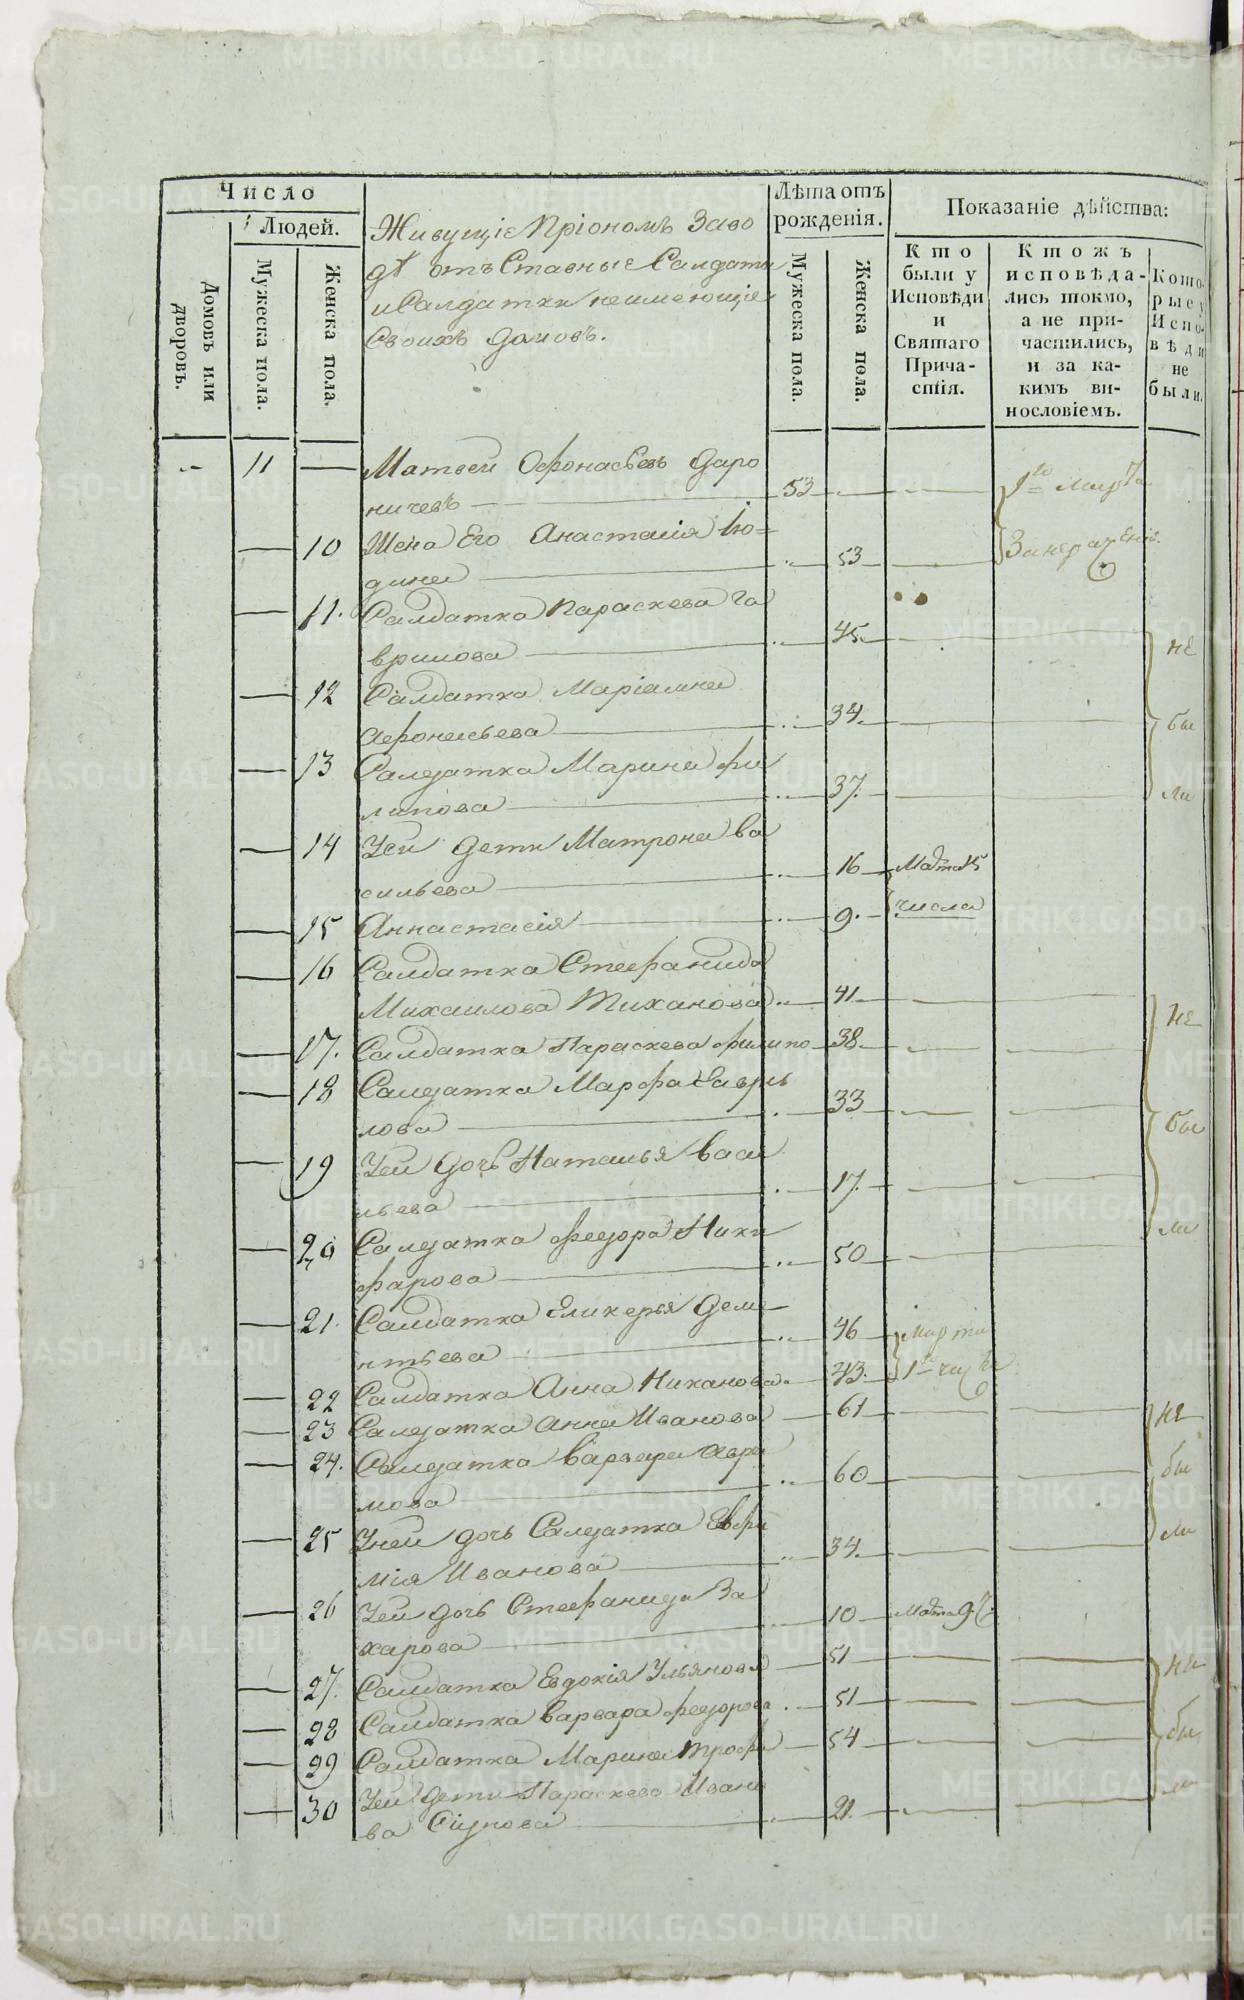 Число
Людей.
Домовъ или дворовъ.
Мужеска пола.
Женска пола.
Живущіе Пріономъ Заво
дѣ отъ Ставные Салдаты
и Салдатки неимеющіе
Своихъ домовъ.
Лѣта отъ рожденія.
Мужеска пола.
Женска пола.
Показаніе дѣйства:
Кто были у Исповѣди и Святаго Прича-стія.
Ктожъ исповѣда-лись токмо, а не при-частились, и за ка-кимъ ви-нословіемъ.
Кото-рые у Испо-вѣди не были.
11 Матвеи Офонасьевъ даро
ничевъ 53 1го марта
10 Жена Его Анастасія
53
11. Салдатка Параскева Га
врилова 45. не
12 Салдатка Маріамна
Афонасьева 34. бы
13 Салдатка Марина Фи
липова 37. ли
14 Уеи дети Матрона Ва
сильева 16 Марта 15
15 Аннастасія 9. числа
16 Салдатка Стефанида
Михаилова Тиханова 41. не
17. Салдатка Параскева Филипо 38.
18 Салдатка Марфа Гаври
лова 33 бы
19 Уеи дочь Наталья Васи
льева 17. ли
20 Салдатка Федора Ники
фарова 50
21. Салдатка Гликерья Деме
нтьева 46 Марта
22 Салдатка Анна Никанова 43. 1го числа
23 Салдатка Анна Иванова 61 не
24. Салдатка Варвара Авра
мова 60 бы
25 Унеи дочь Салдатка Евфи
мія Иванова 34. ли
26 Уеи дочь Стефанида За
харова 10 Марта 9
27. Салдатка Евдокія Ульянова 51 не
28 Салдатка Варвара Федорова 51 бы
29 Салдатка Марина Трофи 54 ли
30 Уеи дети Параскева Ивано
ва 21.
METRIKI.GASO-URAL.RU